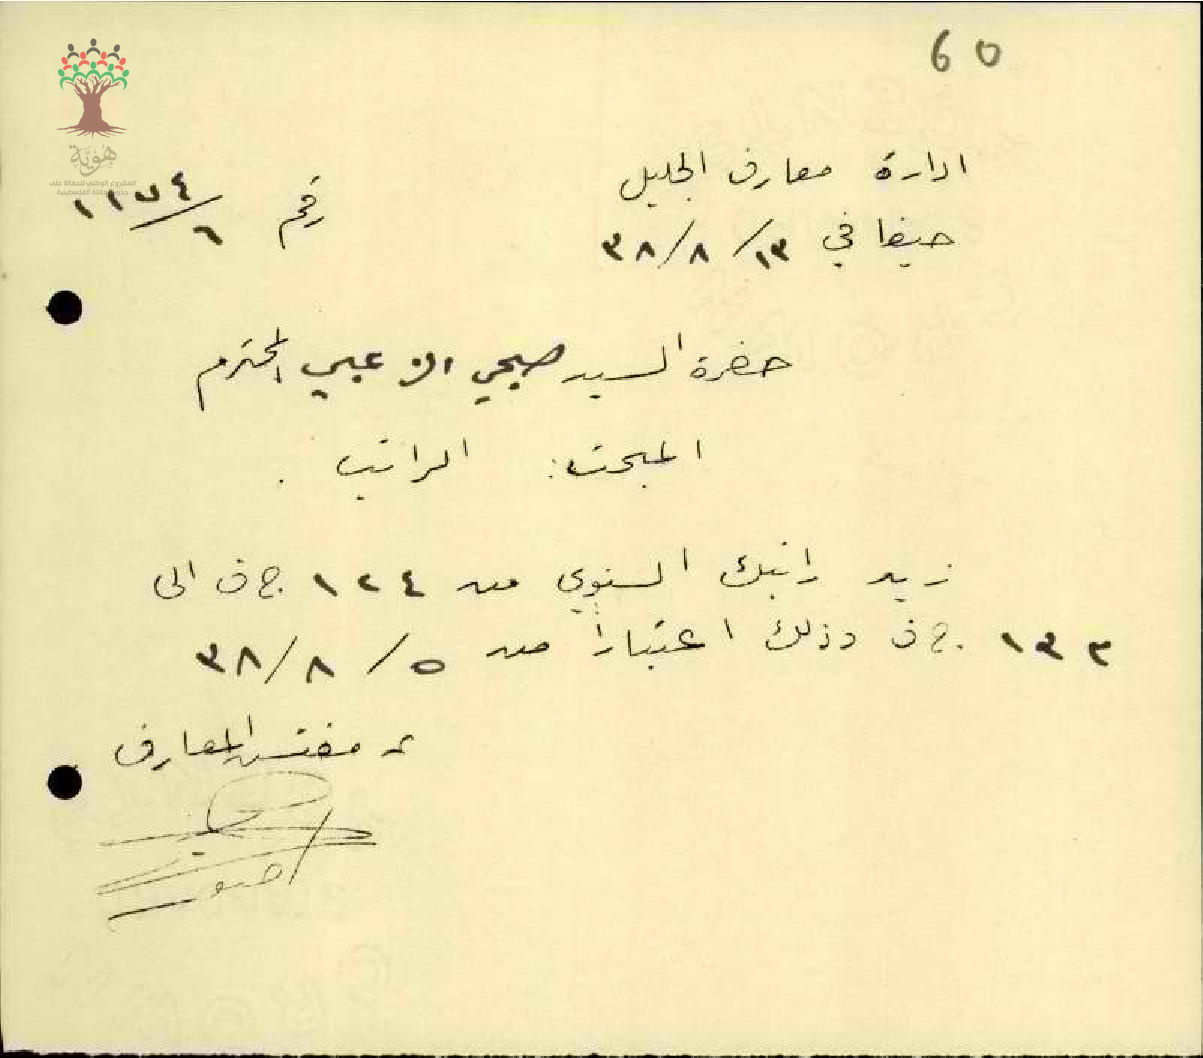 60
هوية
المشروع الوطني للحفاظ على
جذور العائلة الفلسطينية
ادارة معارف الجليل
رقم ١١٧٤/٦
حيفا في ١٣/٨/٣٨
حضرة السيد صبحي الزعبي المحترم
المبحث: الراتب .
زيد راتبك السنوي من ١٢٤ ج ف الى
١٣٣ ج ف وذلك اعتباراً من ٥/٨/٣٨
مفتش المعارف